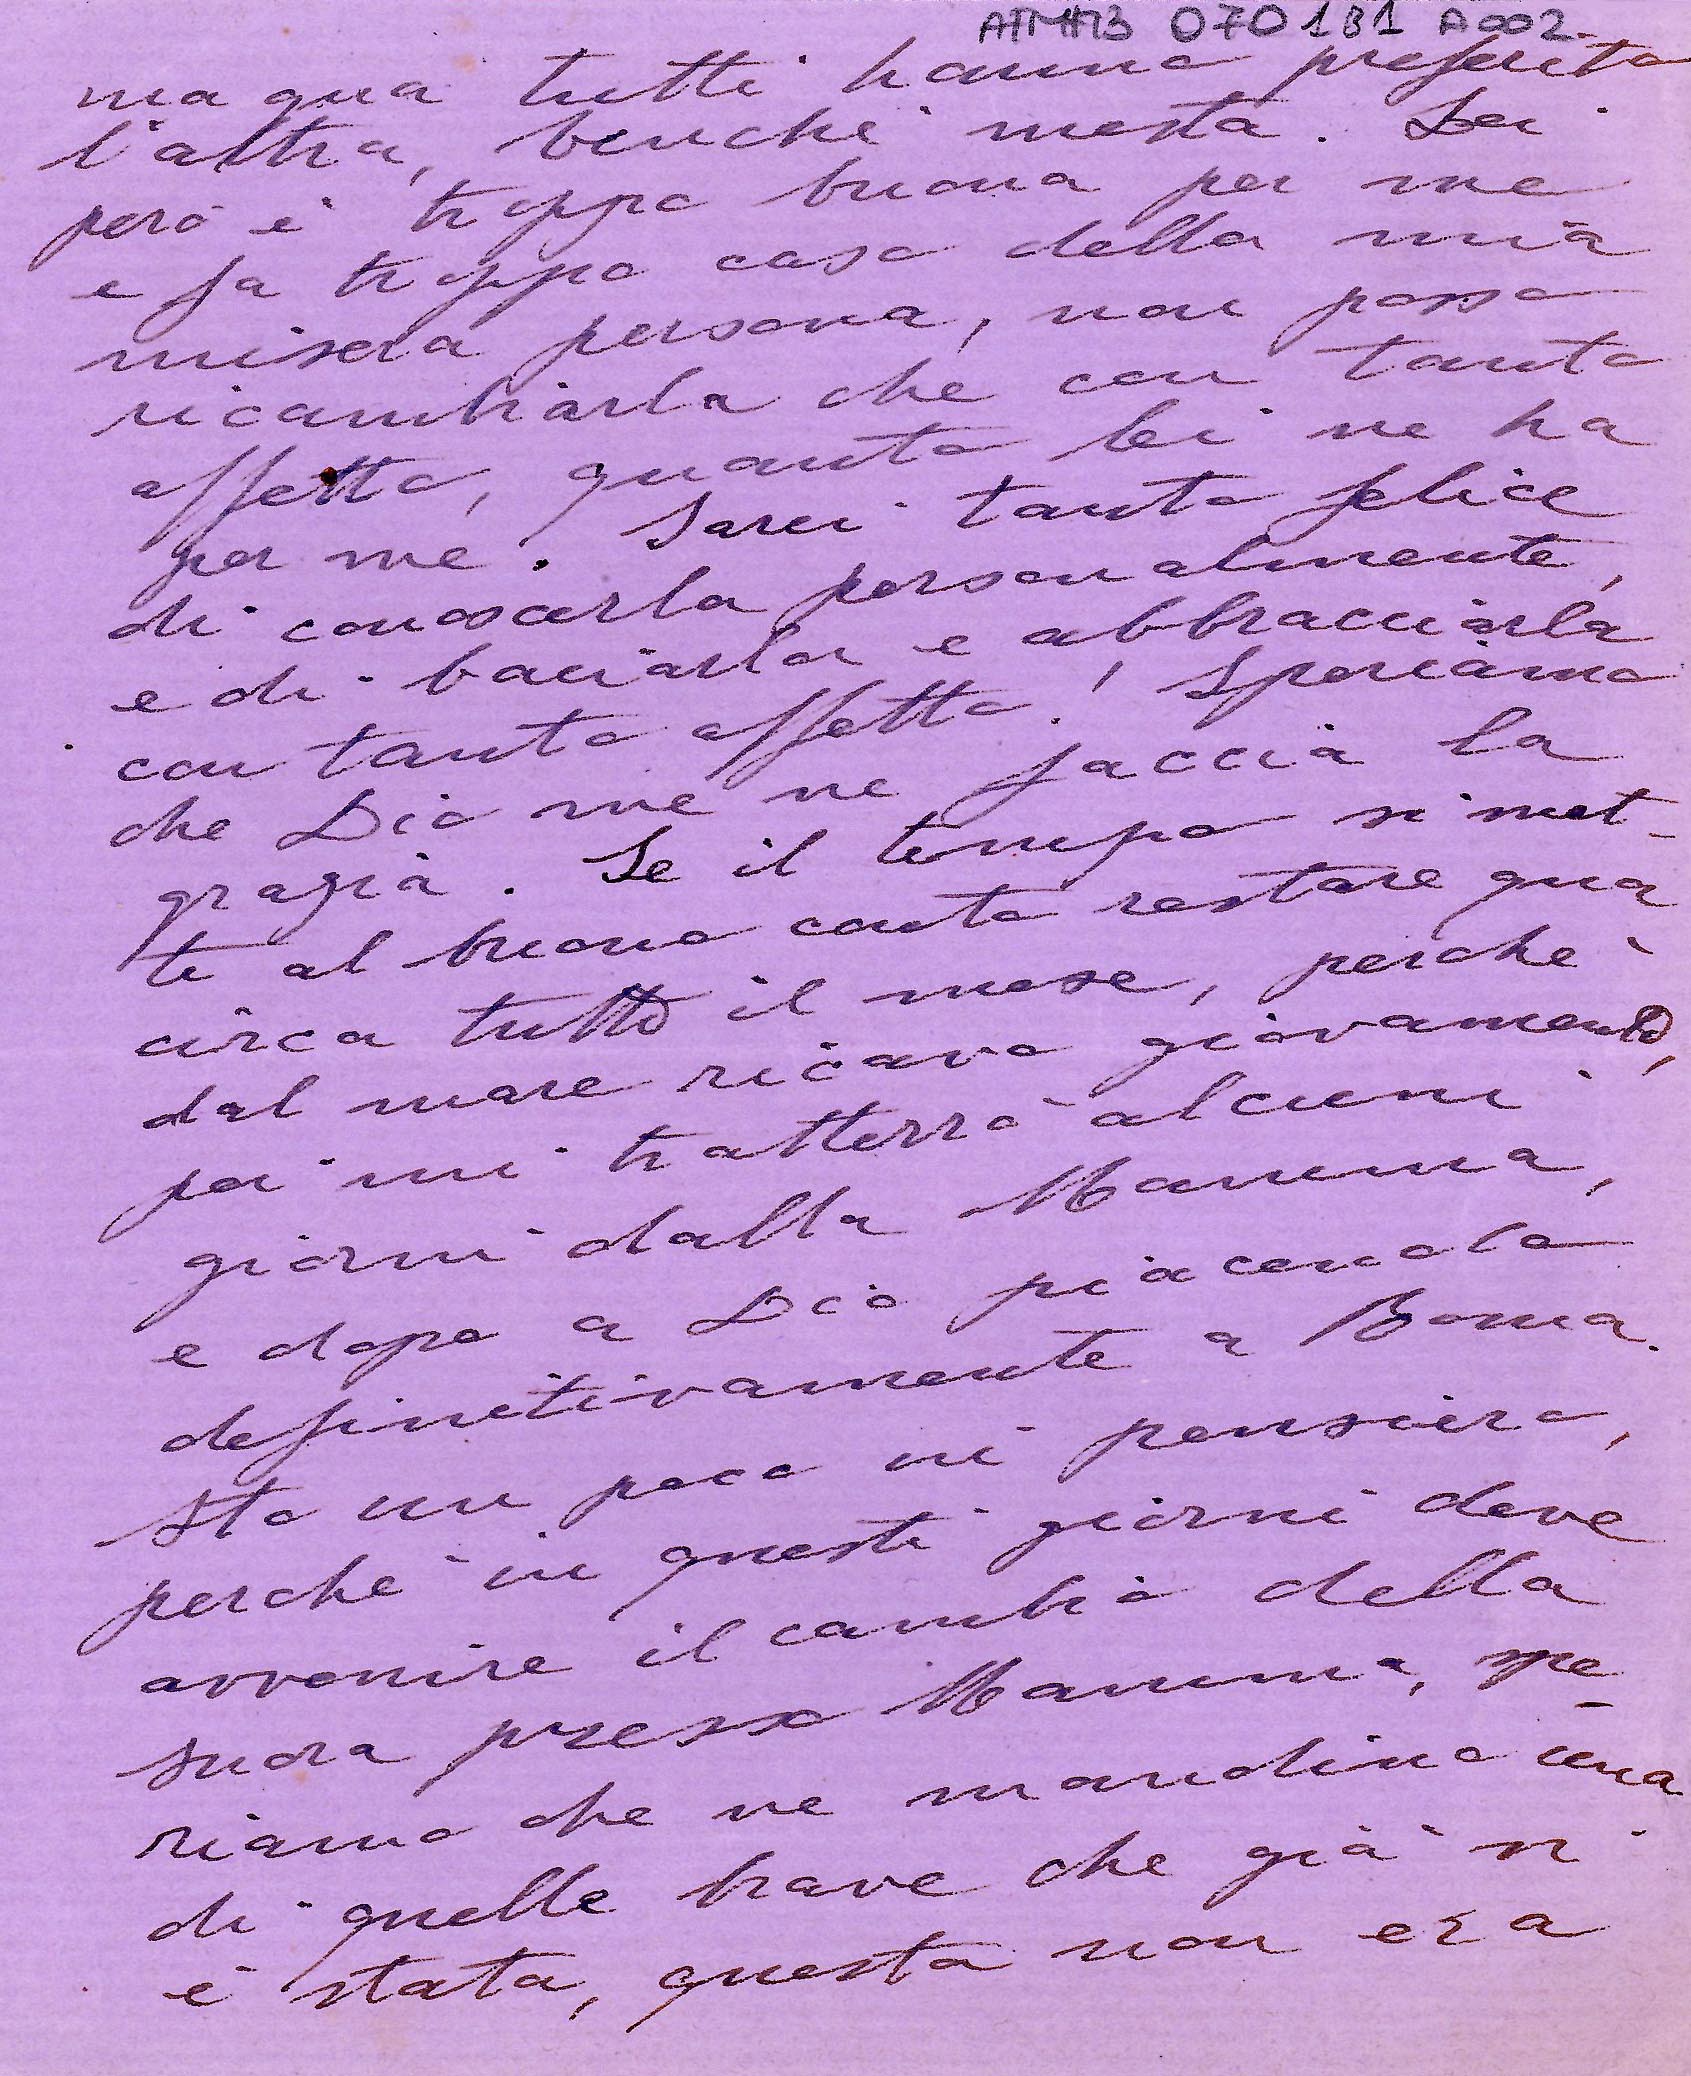 ATMHB 070181 A002
ma qua tutti hanno preferita
l'altra, benchè mesta. Lei
però è troppo buona per me
e fa troppo caso della mia
misera persona, non posso
ricambiarla che con tanto
affetto, quanto lei ne ha
per me. Sarei tanto felice
di conoscerla personalmente,
e di baciarla e abbracciarla
con tanto affetto! Speriamo
che Dio me ne faccia la
grazia. Se il tempo si met-
te al buono conto restare qua
circa tutto il mese, perchè
dal mare ricavo giovamento,
poi mi tratterrò alcuni
giorni dalla Mamma,
e dopo a Dio piacendo
definitivamente a Roma.
Sto un poco in pensiero,
perchè in questi giorni deve
avvenire il cambio della
suora presso Mamma, spe-
riamo che ne mandino una
di quelle brave che già vi
è stata, questa non era